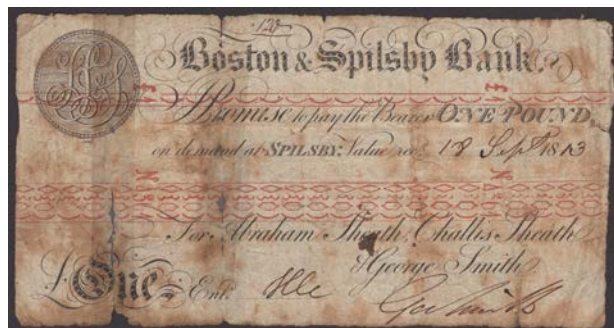 120
Boston & Spilsby Bank.
Promise to pay the Bearer ONE POUND,
on demand at SPILSBY: Value recd. 18 Sept 1813
For Abraham Sheath, Challis Sheath
& George Smith
£ One Entd.
Geo Smith